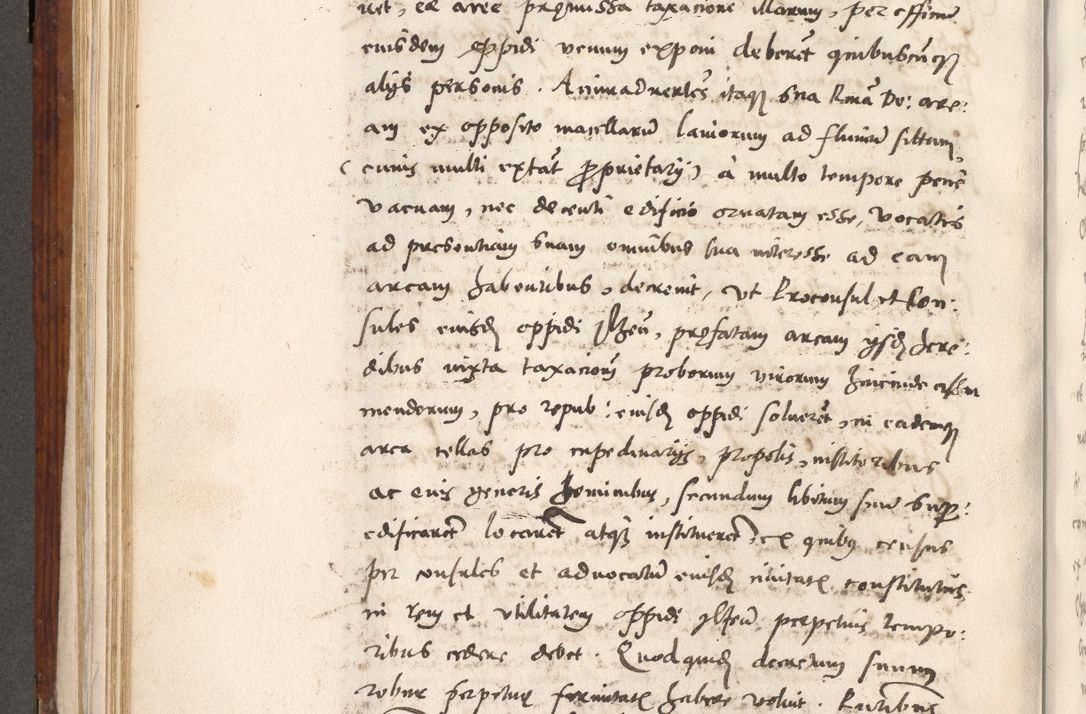 ret, ea aree premissa taxacione illarum, per efficiu
eiusdem oppidi venum exponi deberet quibuscunq
alijs personis. Animadvertes itaq sua Rma Do: are:
am ex opposito macellaru laniorum ad fluuiu sittam,
(cuius multi extat proprietarij) a multo tempore pene
vacuam, nec decenti edificio ornatam esse, vocatis
ad presentiam suam omnibus sua interesse ad eam
aream habentibus, decreuit, vt Proconsul et Con:
sules eiusd oppidi Ilzen, prefatam aream ipsd here:
dibus iuxta taxacione proborum virorum hincinde assu
mendorum, pro repub: eiusd oppidi solueret, in eademq
area cellas pro cupedinarijs, propolis, institoribus
ac cuis generis hominibus, secundum libitum suu sup:
edificaret locaret atq institueret, ex quibus census
per consules et aduocatu eiusd ciuitatis constitutus,
in rem et vtilitatem oppidi Ilzen perpetuis tempo:
ribus cedere debet. Quod quid decretum suum
robur perpetue firmitatis habere voluit.